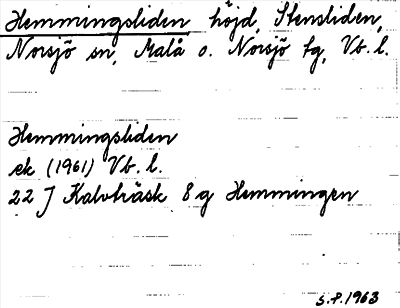 Hemmingsliden höjd, Stensliden,
Norsjö sn, Malå o. Norsjö tg, Vb. l.
Hemmingsliden
ek (1961) Vb. l.
22 J Kalvträsk 8 g Hemmingen
S.P. 1963